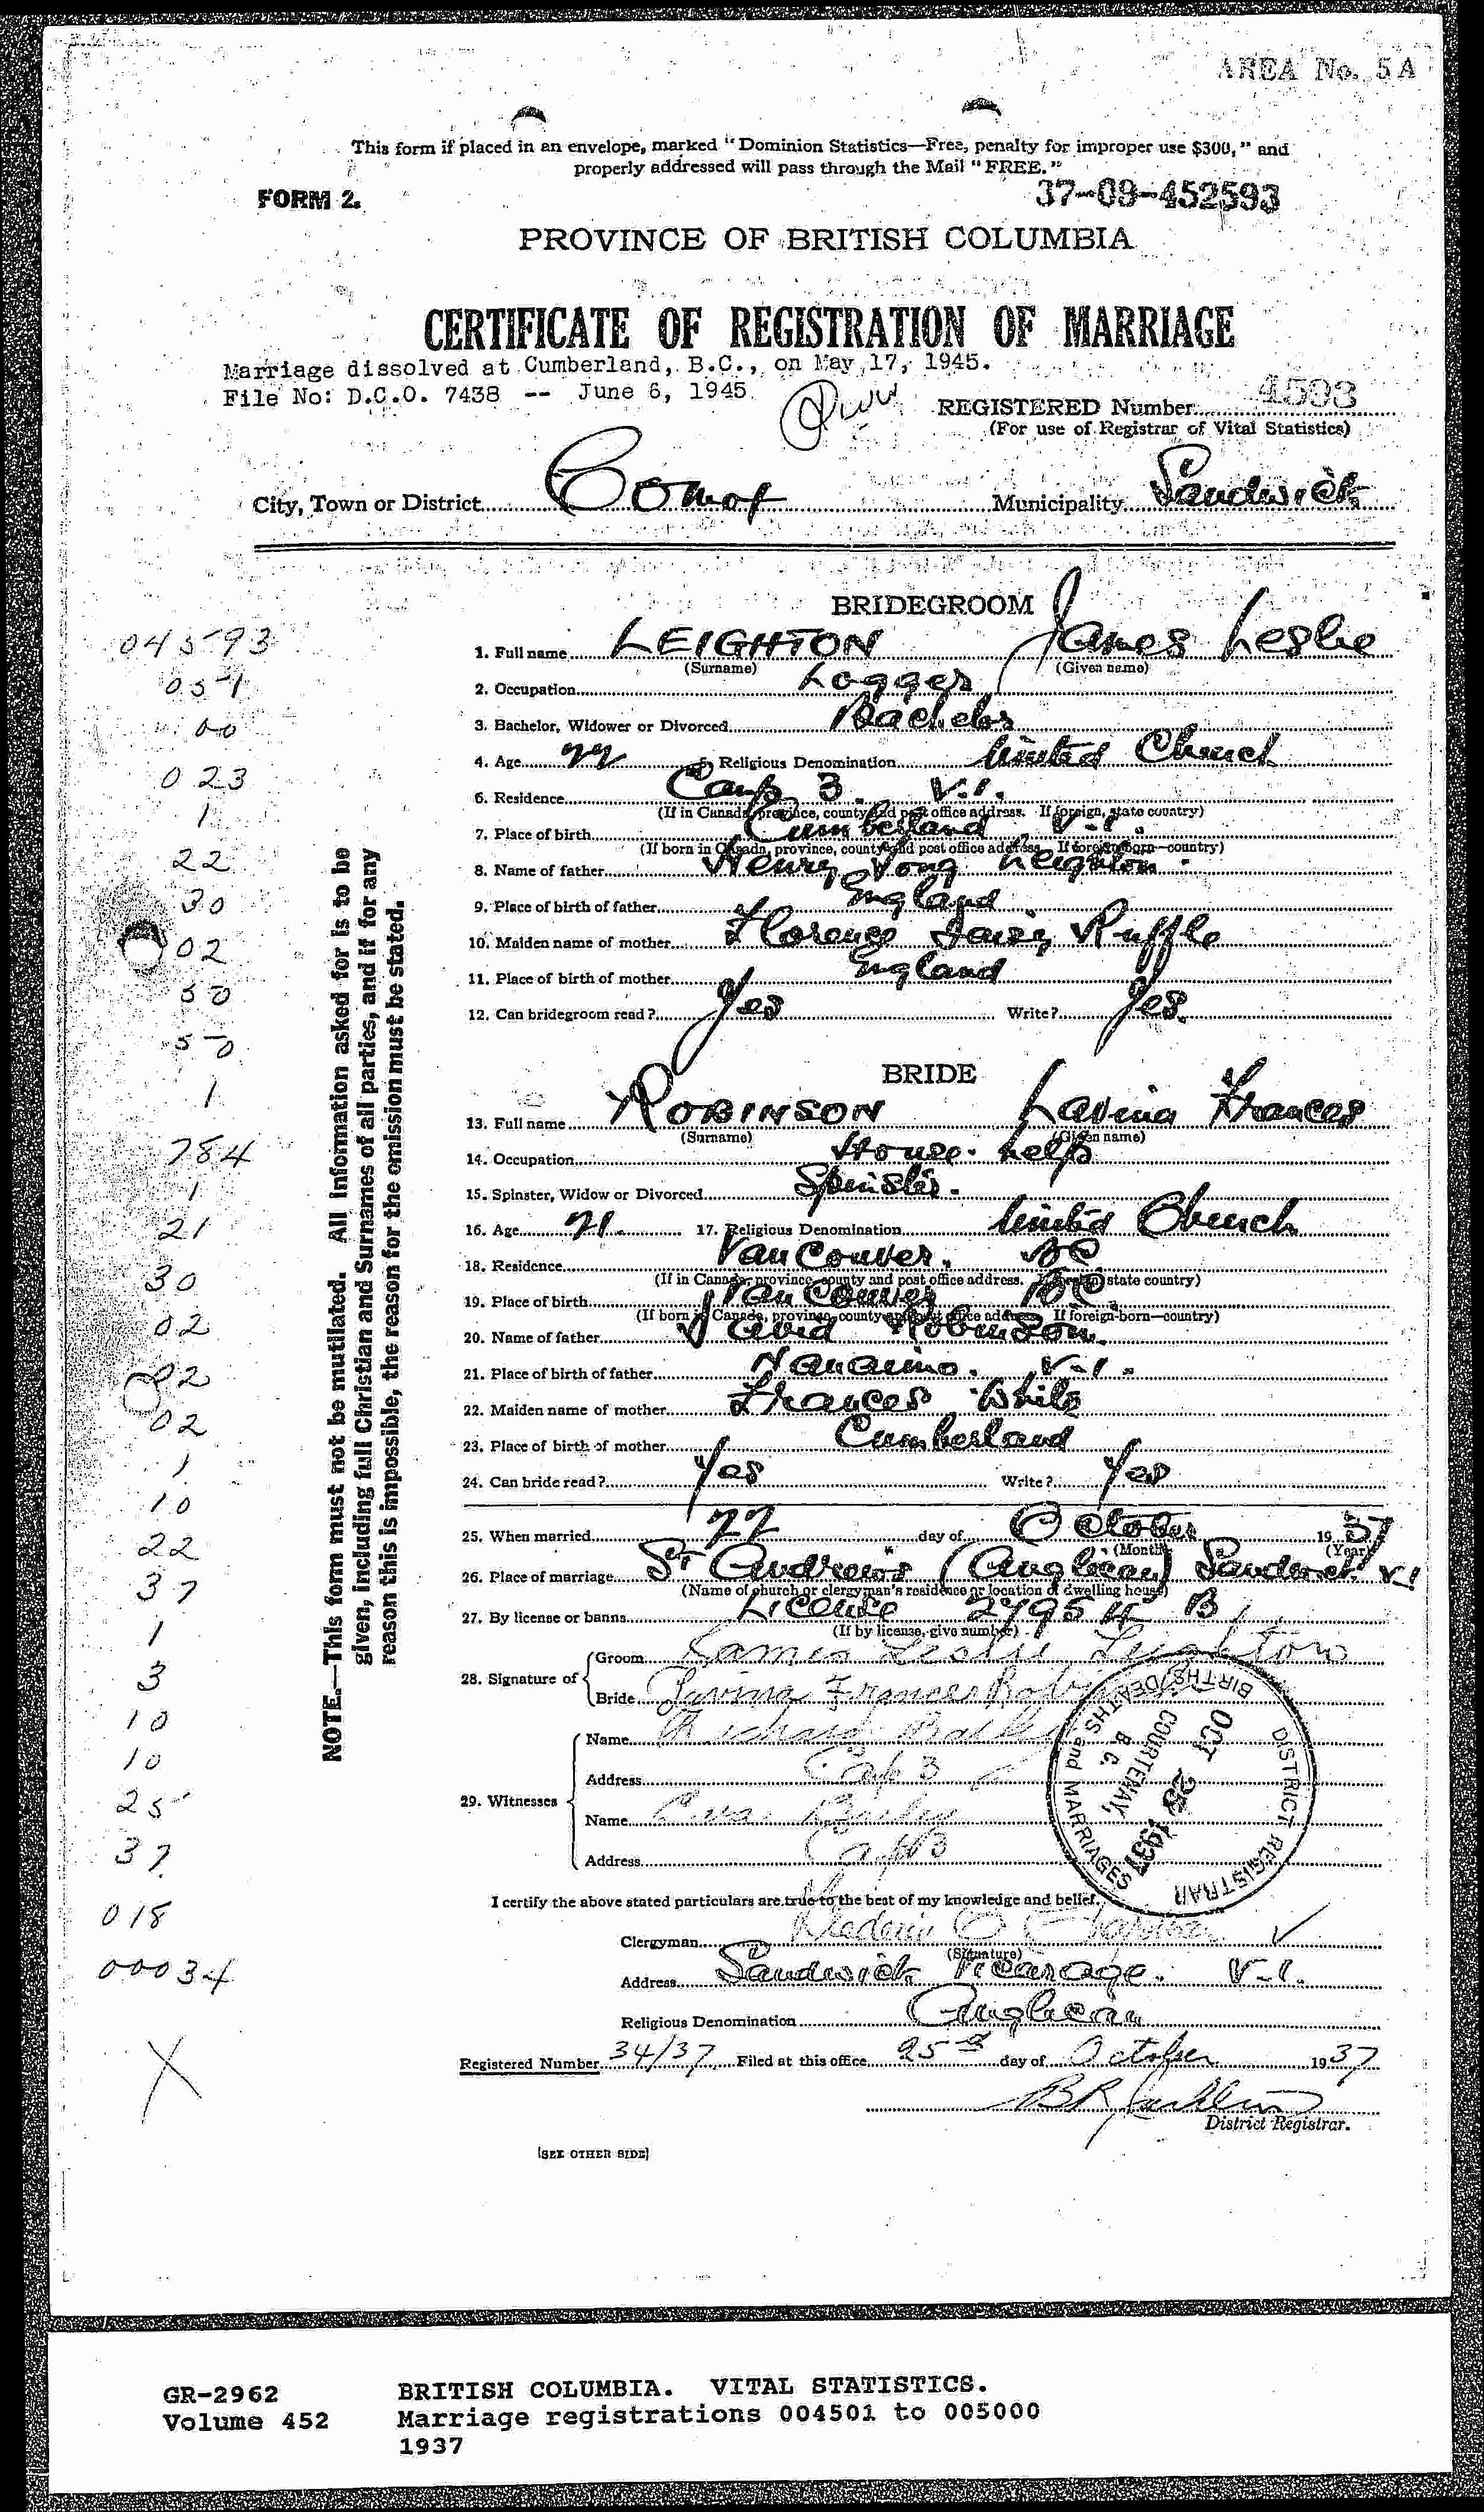 AREA No. 5A
This form if placed in an envelope, marked "Dominion Statistics—Free, penalty for improper use $300," and
properly addressed will pass through the Mail "FREE."
FORM 2.
37-09-452593
PROVINCE OF BRITISH COLUMBIA
CERTIFICATE OF REGISTRATION OF MARRIAGE
Marriage dissolved at Cumberland, B.C., on May 17, 1945.
File No: D.C.O. 7438 -- June 6, 1945
REGISTERED Number 4593
(For use of Registrar of Vital Statistics)
City, Town or District Comox Municipality Sandwick
BRIDEGROOM
1. Full name LEIGHTON James Leslie
(Surname) (Given name)
2. Occupation Logger
3. Bachelor, Widower or Divorced Bachelor
4. Age 22 5. Religious Denomination United Church
6. Residence Camp 3. V.I.
(If in Canada, province, county and post office address. If foreign, state country)
7. Place of birth Cumberland V.I.
(If born in Canada, province, county and post office address. If foreign-born—country)
8. Name of father Henry Leighton
9. Place of birth of father England
10. Maiden name of mother Florence Daisy Ruffle
11. Place of birth of mother England
12. Can bridegroom read? Yes Write? Yes.
BRIDE
13. Full name ROBINSON Lavina Frances
(Surname) (Given name)
14. Occupation House help
15. Spinster, Widow or Divorced Spinster.
16. Age 21. 17. Religious Denomination United Church
18. Residence Vancouver. BC
(If in Canada, province, county and post office address. If foreign, state country)
19. Place of birth Vancouver BC
(If born in Canada, province, county and post office address. If foreign-born—country)
20. Name of father David Robinson.
21. Place of birth of father Nanaimo. V.I.
22. Maiden name of mother Frances White
23. Place of birth of mother Cumberland
24. Can bride read? Yes Write? Yes
25. When married 22 day of October 1937
(Month) (Year)
26. Place of marriage St Andrews (Anglican) Sandwick V.I
(Name of church or clergyman's residence or location of dwelling house)
27. By license or banns License 27954 B
(If by license, give number)
28. Signature of Groom James Leslie Leighton
Bride Lavina Frances
29. Witnesses
Name Richard
Address Camp 3
Name Bailey
Address Camp 3
DISTRICT REGISTRAR BIRTHS, DEATHS and MARRIAGES
OCT 25 1937
COURTENAY, B. C.
I certify the above stated particulars are true to the best of my knowledge and belief.
Clergyman
(Signature)
Address Sandwick Vicarage. V.I.
Religious Denomination Anglican
Registered Number 34/37 Filed at this office 25th day of October 1937
District Registrar.
[SEE OTHER SIDE]
NOTE.—This form must not be mutilated. All information asked for is to be
given, including full Christian and Surnames of all parties, and if for any
reason this is impossible, the reason for the omission must be stated.
04593
051
00
023
1
22
30
02
50
50
1
784
1
21
30
02
02
02
1
10
22
37
1
3
10
10
25
37
018
00034
X
GR-2962 BRITISH COLUMBIA. VITAL STATISTICS.
Volume 452 Marriage registrations 004501 to 005000
1937